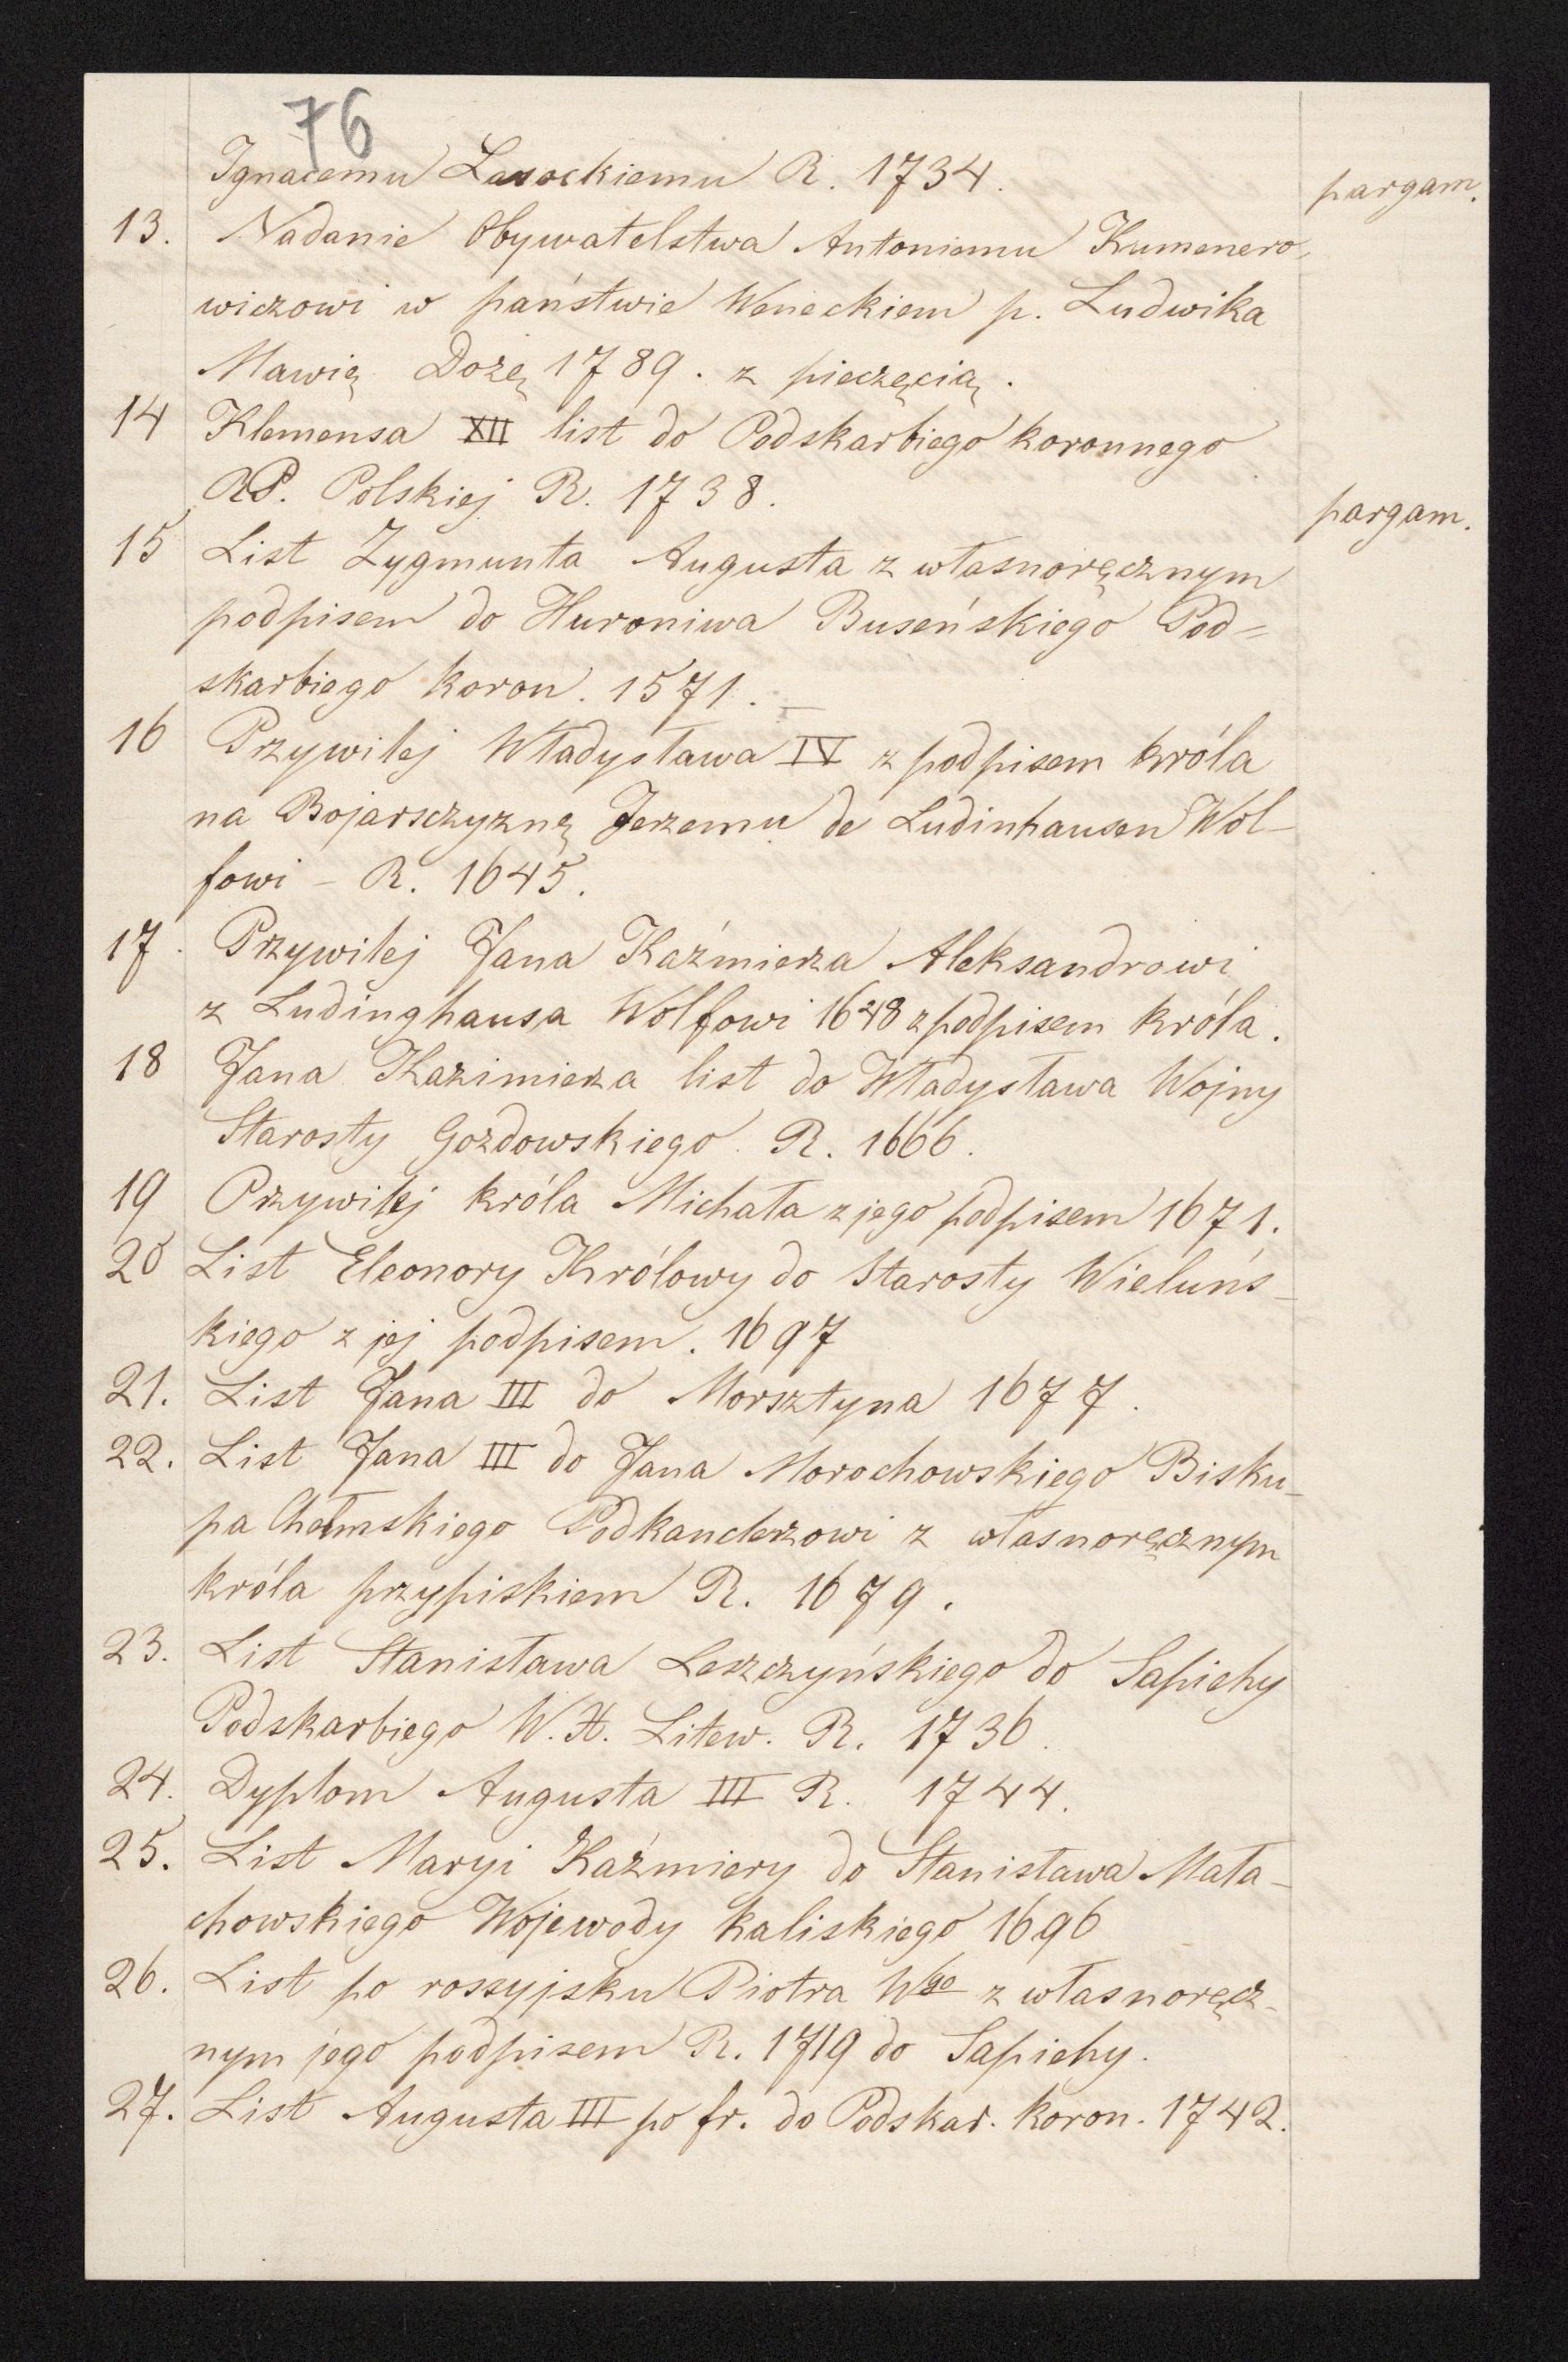 76
Ignacemu Lasockiemu R. 1734. pargam.
13. Nadanie Obywatelstwa Antoniemu Kumenero-
wiczowi w państwie Weneckiem p. Ludwika
Mawię Dożę 1789. z pieczęcią.
14 Klemensa XII list do Podskarbiego koronnego
RP. Polskiej R. 1738. pargam.
15 List Zygmunta Augusta z własnoręcznym
podpisem do Huroniwa Buseńskiego Pod=
skarbiego koron. 1571. –
16 Przywilej Władysława IV z podpisem króla
na Bojarsczyznę Jerzemu de Ludinhausen Wol-
fowi – R. 1645.
17. Przywilej Jana Kaźmierza Aleksandrowi
z Ludinghausa Wolfowi 1648 z podpisem króla.
18 Jana Kazimierza list do Władysława Wojny
Starosty Gozdowskiego R. 1666.
19 Przywilej króla Michała z jego podpisem 1671.
20 List Eleonory Królowy do Starosty Wieluńs-
kiego z jej podpisem. 1697
21. List Jana III do Morsztyna 1677.
22. List Jana III do Jana Morochowskiego Bisku-
pa Chełmskiego Podkanclerzowi z własnoręcznym
króla przypiskiem R. 1679.
23. List Stanisława Leszczyńskiego do Sapiehy
Podskarbiego W. X. Litew. R. 1736.
24. Dyplom Augusta III R. 1744.
25. List Maryi Kaźmiery do Stanisława Mała-
chowskiego Wojewody kaliskiego 1696
26. List po rossyjsku Piotra Wgo z własnoręcz-
nym jego podpisem R. 1719 do Sapiehy.
27. List Augusta III po fr. do Podskar. koron. 1742.